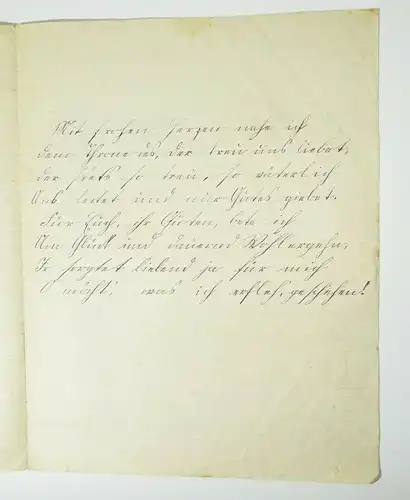 Mit frohen Herzen nahe ich
dem Throne des, der treu uns liebet,
der stets so treu, so väterlich
Uns leitet und nur Gutes giebet.
Für Euch, ihr Guten, bete ich
Um Glück und dauernd Wohlergehn,
Ihr sorgtet liebend ja für mich
O möcht', was ich erfleh, geschehen!